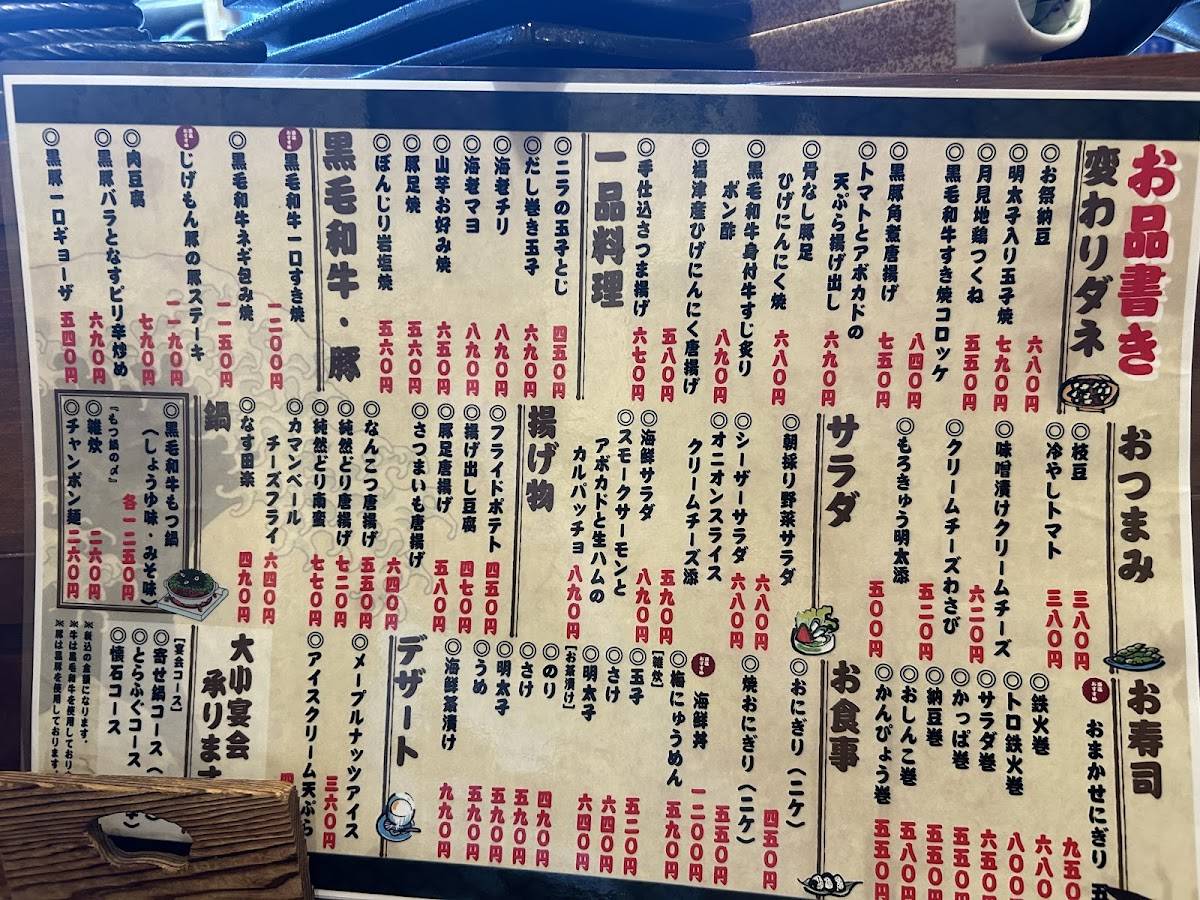 お品書き
変わりダネ
◎お祭納豆 六八0円
◎明太子入り玉子焼 七九0円
◎月見地鶏つくね 五五0円
◎黒毛和牛すき焼コロッケ 八四0円
◎黒豚角煮唐揚げ 七五0円
◎トマトとアボカドの
天ぷら揚げ出し 六九0円
◎骨なし豚足
ひげにんにく焼 六八0円
◎黒毛和牛身付牛すじ炙り
ポン酢 八九0円
◎福津産ひげにんにく唐揚げ 五八0円
◎手仕込さつま揚げ 六七0円
一品料理
◎ニラの玉子とじ 四五0円
◎だし巻き玉子 六九0円
◎海老チリ 八九0円
◎海老マヨ 八九0円
◎山芋お好み焼 六五0円
◎豚足焼 五六0円
◎ぼんじり岩塩焼 五六0円
黒毛和牛・豚
黒毛和牛一口すき焼 一二00円
◎黒毛和牛ネギ包み焼 一一五0円
じげもん豚の豚ステーキ 一一九0円
◎肉豆腐 七九0円
◎黒豚バラとなすピリ辛炒め 六九0円
◎黒豚一口ギョーザ 五四0円
おつまみ
◎枝豆 三八0円
◎冷やしトマト 三八0円
◎味噌漬けクリームチーズ 六二0円
◎クリームチーズわさび 五二0円
◎もろきゅう明太添 五00円
サラダ
◎朝採り野菜サラダ 六八0円
◎シーザーサラダ 六八0円
◎オニオンスライス
クリームチーズ添 五九0円
◎海鮮サラダ 八九0円
◎スモークサーモンと
アボカドと生ハムの
カルパッチョ 八九0円
揚げ物
◎フライドポテト 四五0円
◎揚げ出し豆腐 四七0円
◎豚足唐揚げ 五八0円
◎さつまいも唐揚げ 六四0円
◎なんこつ唐揚げ 五五0円
◎純然どり唐揚げ 七二0円
◎純然どり南蛮 七七0円
◎カマンベール
チーズフライ 六四0円
◎なす田楽 四九0円
鍋
◎黒毛和牛もつ鍋
(しょうゆ味・みそ味) 各一二五0円
『もつ鍋の〆』
◎雑炊 二六0円
◎チャンポン麺 二六0円
お寿司
おまかせにぎり 五
九五0
◎鉄火巻 六八0
◎トロ鉄火巻 八00
◎サラダ巻 六五0円
◎かっぱ巻 五五0円
◎納豆巻 五五0円
◎おしんこ巻 五八0円
◎かんぴょう巻 五五0円
お食事
◎おにぎり(二ケ) 四五0円
◎焼おにぎり(二ケ) 五五0円
海鮮丼 一二00円
◎梅にゅうめん 五九0円
[雑炊]
◎玉子 五二0円
◎さけ 六四0円
◎明太子 六四0円
[お茶漬け]
◎のり 四九0円
◎さけ 五九0円
◎明太子 五九0円
◎うめ 五五0円
◎海鮮茶漬け 九九0円
デザート
◎メープルナッツアイス 三六0円
◎アイスクリーム天ぷら 四
大小宴会
承ります
[宴会コース]
◎寄せ鍋コース(
◎とらふぐコース
◎懐石コース
※税込の金額になります。
※牛は黒毛和牛を使用しており
※豚は黒豚を使用しております。